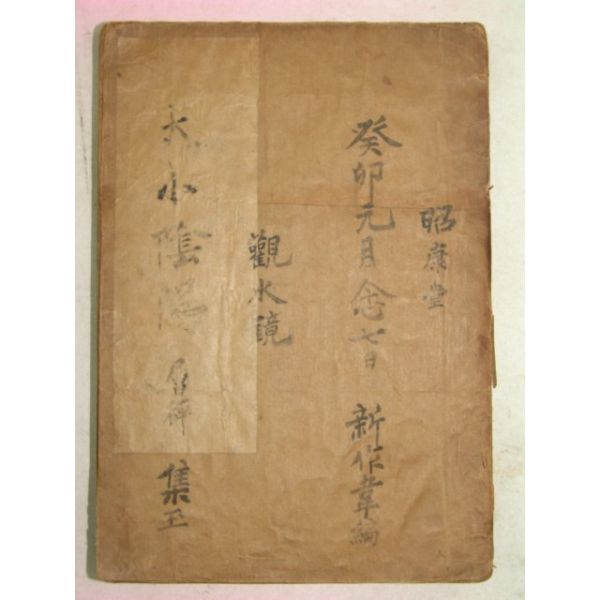 昭康堂
癸卯元月念七日 新作韋編
觀水鏡
大小陰陽 集玉